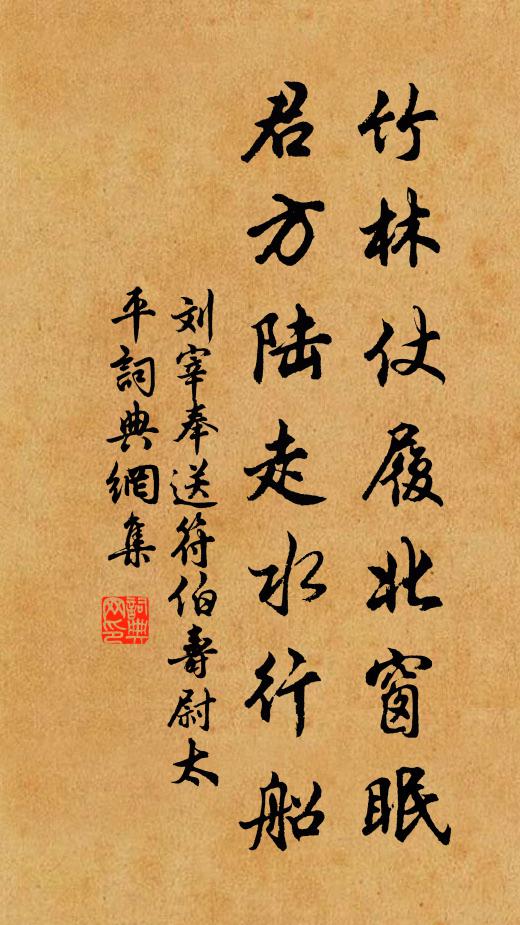 竹林仗履北窗眠
君方陆走水行船
刘宰奉送符伯寿尉太
平詞典網集
詞典
网印